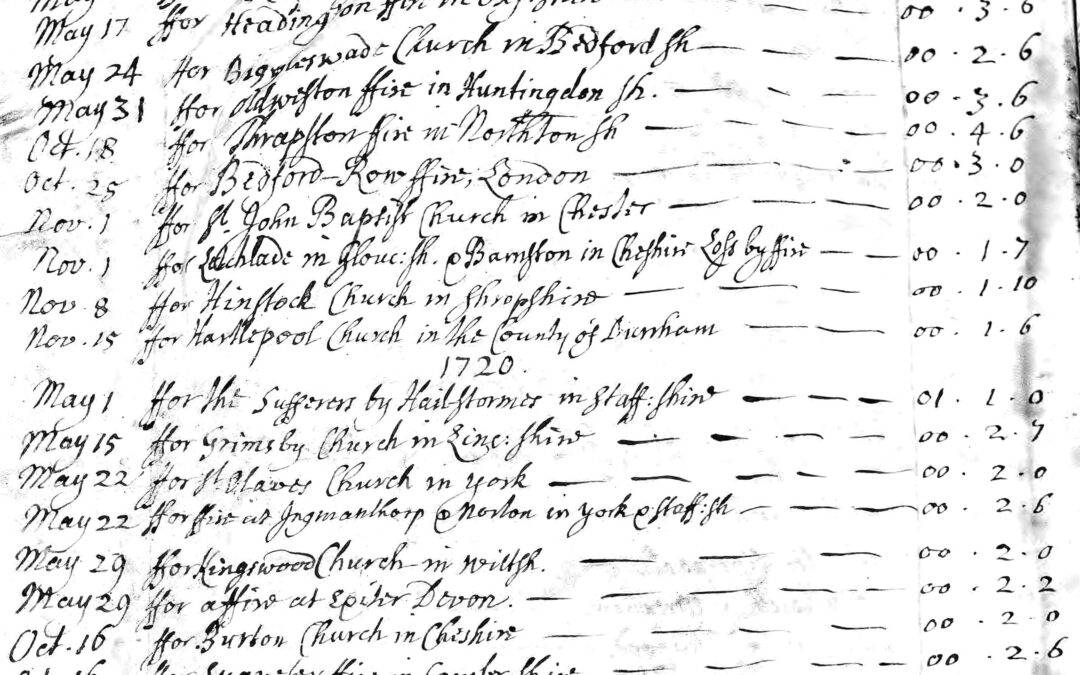 May 17 ffor Headington ffire in Oxf: shire 00 . 3 . 6
May 24 ffor Biggleswade Church in Bedford sh — — — 00 . 2 . 6
May 31 ffor Oldweston ffire in Huntingdon sh. — — — — 00 . 3 . 6
Oct. 18 ffor Thrapston ffire in Northton sh — — — — 00 . 4 . 6
Oct. 25 ffor Bedford-Row ffire, London — — — 00 . 3 . 0
Nov. 1 ffor St. John Baptist Church in Chester — — — — 00 . 2 . 0
Nov. 1 ffor Lechlade in Glouc: sh. & Barnston in Cheshire Loss by ffire — — 00 . 1 . 7
Nov. 8 ffor Hinstock Church in Shropshire — — — — 00 . 1 . 10
Nov. 15 ffor Hartlepool Church in the County of Durrham — — — 00 . 1 . 6
1720.
May 1 ffor the Sufferers by Hailstormes in Staff: shire — — — — 01 . 1 . 0
May 15 ffor Grimsby Church in Linc: shire — — — — 00 . 2 . 7
May 22 ffor St. Olaves Church in York — — — — — 00 . 2 . 0
May 22 ffor ffire at Ingmanthorp & Norton in York & Staff: sh — — — — 00 . 2 . 6
May 29 ffor Kingswood Church in Wiltsh. — — — — 00 . 2 . 0
May 29 ffor a ffire at Exiter Devon. — — — — — 00 . 2 . 2
Oct. 16 ffor Burton Church in Cheshire — — — — 00 . 2 . 0
Oct. 16 ffor ffire in shire — — — — 00 . 2 . 6